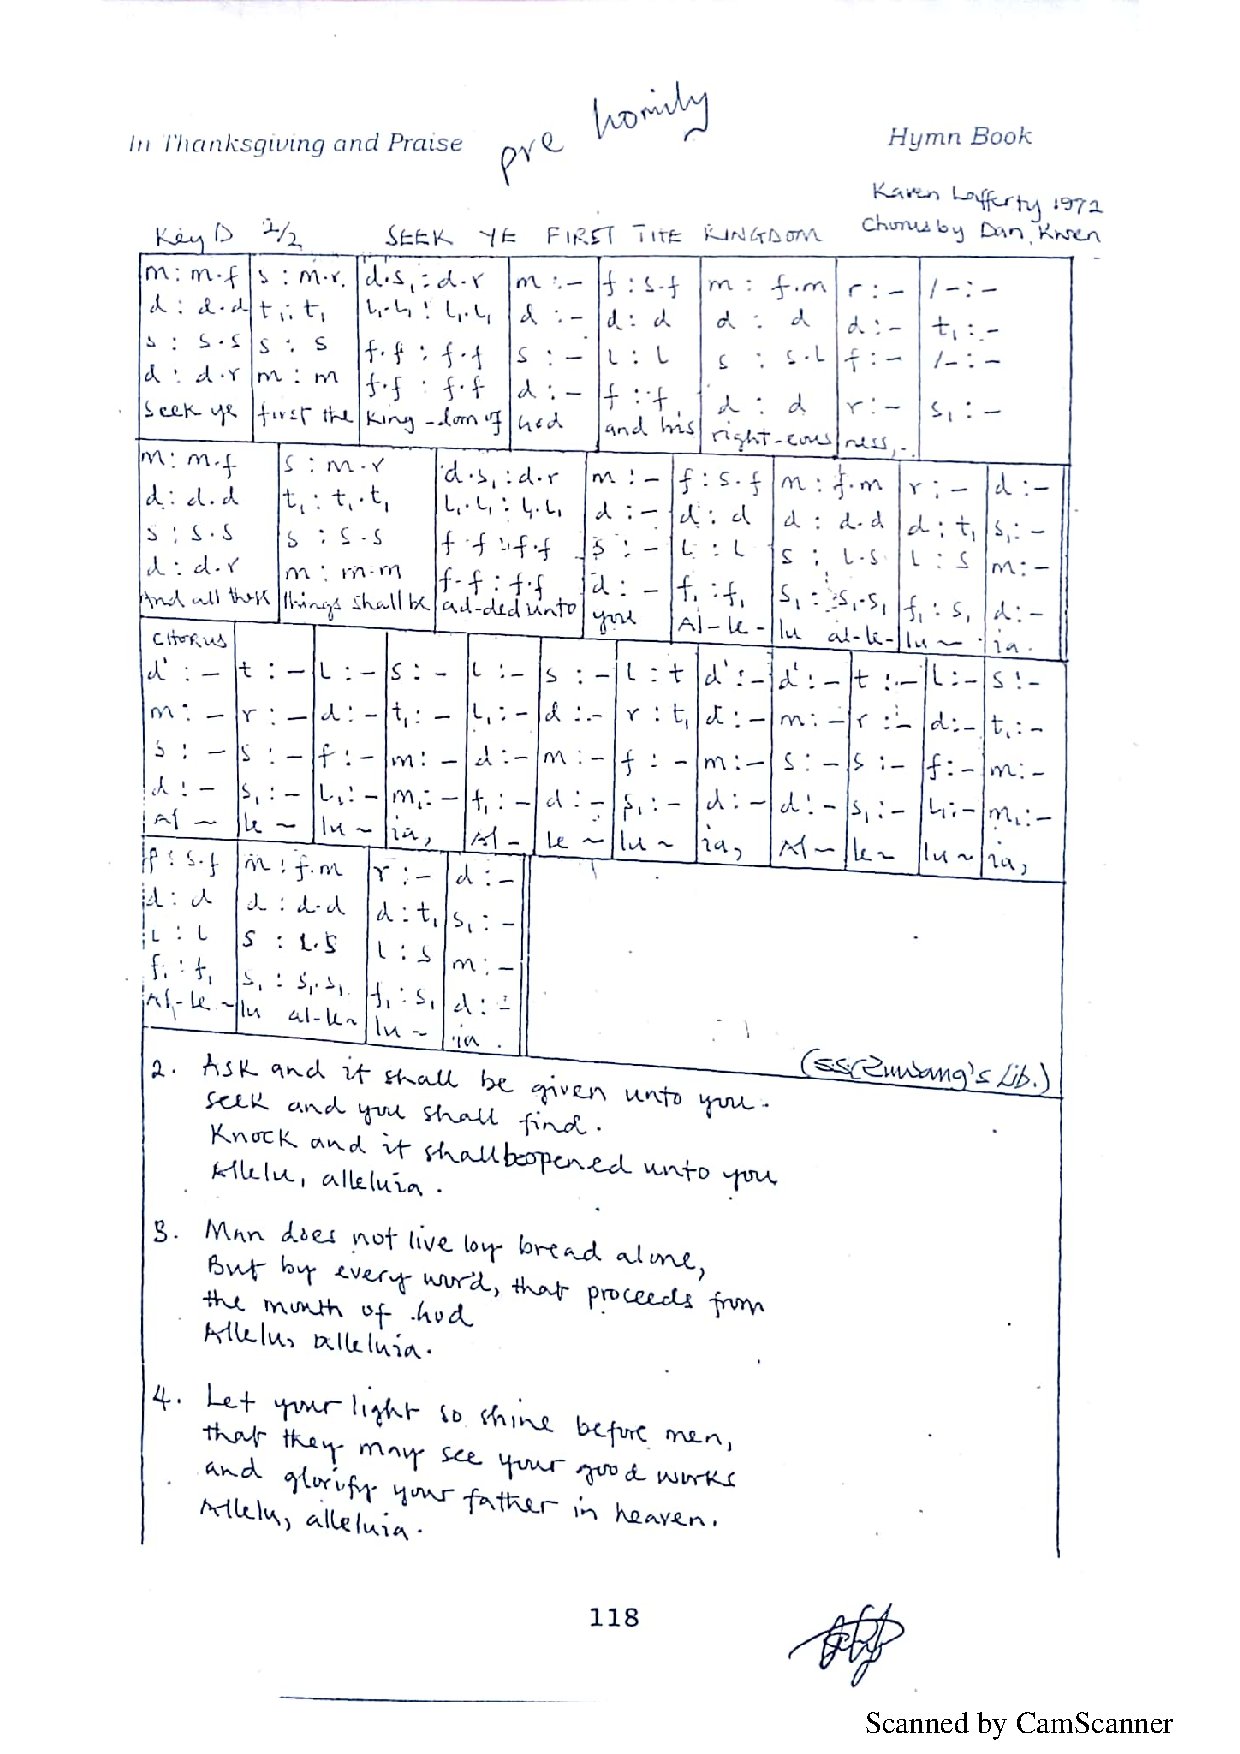 pre homily
In Thanksgiving and Praise Hymn Book
Karen Lafferty 1972
Key D 2/2 SEEK YE FIRST THE KINGDOM Chorus by Dan, Kwen
m : m.f | s : m.r. | d.s₁ : d.r | m :- | f : s.f | m : f.m | r :- | /- :-
d : d.d | t₁ : t₁ | l₁.l₁ : l₁.l₁ | d :- | d : d | d : d | d :- | t₁ :-
s : s.s | s : s | f.f : f.f | s :- | l : l | s : s.l | f :- | /- :-
d : d.r | m : m | f.f : f.f | d :- | f : f. | d : d | r :- | s₁ :-
Seek ye | first the | King-dom of | God | and his | right-eous | ness,..
m : m.f | s : m.r | d.s₁ : d.r | m :- | f : s.f | m : f.m | r :- | d :-
d : d.d | t₁ : t₁.t₁ | l₁.l₁ : l₁.l₁ | d :- | d : d | d : d.d | d : t₁ | s₁ :-
s : s.s | s : s.s | f.f : f.f | s :- | l : l | s : l.s | l : s | m :-
d : d.r | m : m.m | f.f : f.f | d :- | f₁ : f₁ | s₁ : s₁.s₁ | f₁ : s₁ | d :-
And all these | things shall be | ad-ded unto | you | Al-le- | lu al-le- | lu ~ | ia.
CHORUS
d' :- | t :- | l :- | s :- | l :- | s :- | l : t | d' :- | d' :- | t :- | l :- | s :-
m :- | r :- | d :- | t₁ :- | l₁ :- | d :- | r : t₁ | d :- | m :- | r :- | d :- | t₁ :-
s :- | s :- | f :- | m :- | d :- | m :- | f :- | m :- | s :- | s :- | f :- | m :-
d :- | s₁ :- | l₁ :- | m₁ :- | f₁ :- | d :- | s₁ :- | d :- | d :- | s₁ :- | l₁ :- | m₁ :-
Al ~ | le ~ | lu ~ | ia, | Al - | le ~ | lu ~ | ia, | Al ~ | le ~ | lu ~ | ia,
f : s.f | m : f.m | r :- | d :-
d : d | d : d.d | d : t₁ | s₁ :-
l : l | s : l.s | l : s | m :-
f₁ : f₁ | s₁ : s₁.s₁ | f₁ : s₁ | d :-
Al-le ~ | lu al-le ~ | lu ~ | ia.
2. Ask and it shall be given unto you.
seek and you shall find.
Knock and it shall be opened unto you
Allelu, alleluia.
3. Man does not live by bread alone,
But by every word, that proceeds from
the mouth of God
Allelu, alleluia.
4. Let your light so shine before men,
that they may see your good works
and glorify your father in heaven.
Allelu, alleluia.
118
Scanned by CamScanner